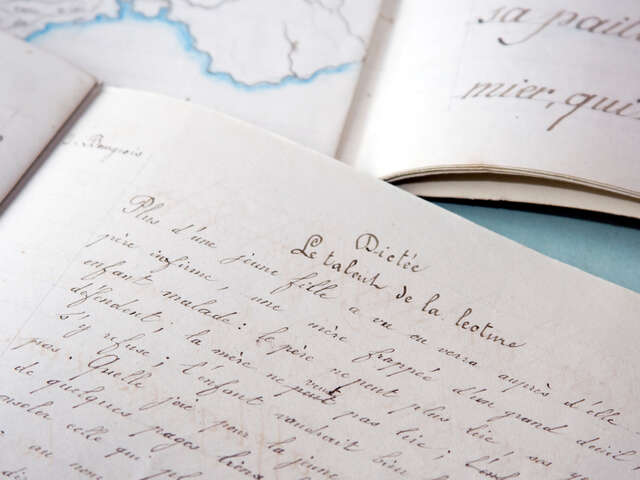 sa pail
mier, qui
D. Bourgeois
Dictée
Le talent de la lecture
Plus d'une jeune fille a eu ou verra auprès d'elle
père infirme, une mère frappée d'un grand deuil,
enfant malade: le père ne peut plus lire, ses ye
défendent; la mère ne veut pas lire; l'es
s'y refuse; l'enfant voudrait bien
pas. Quelle joie pour la jeune
de quelques pages
celle qui